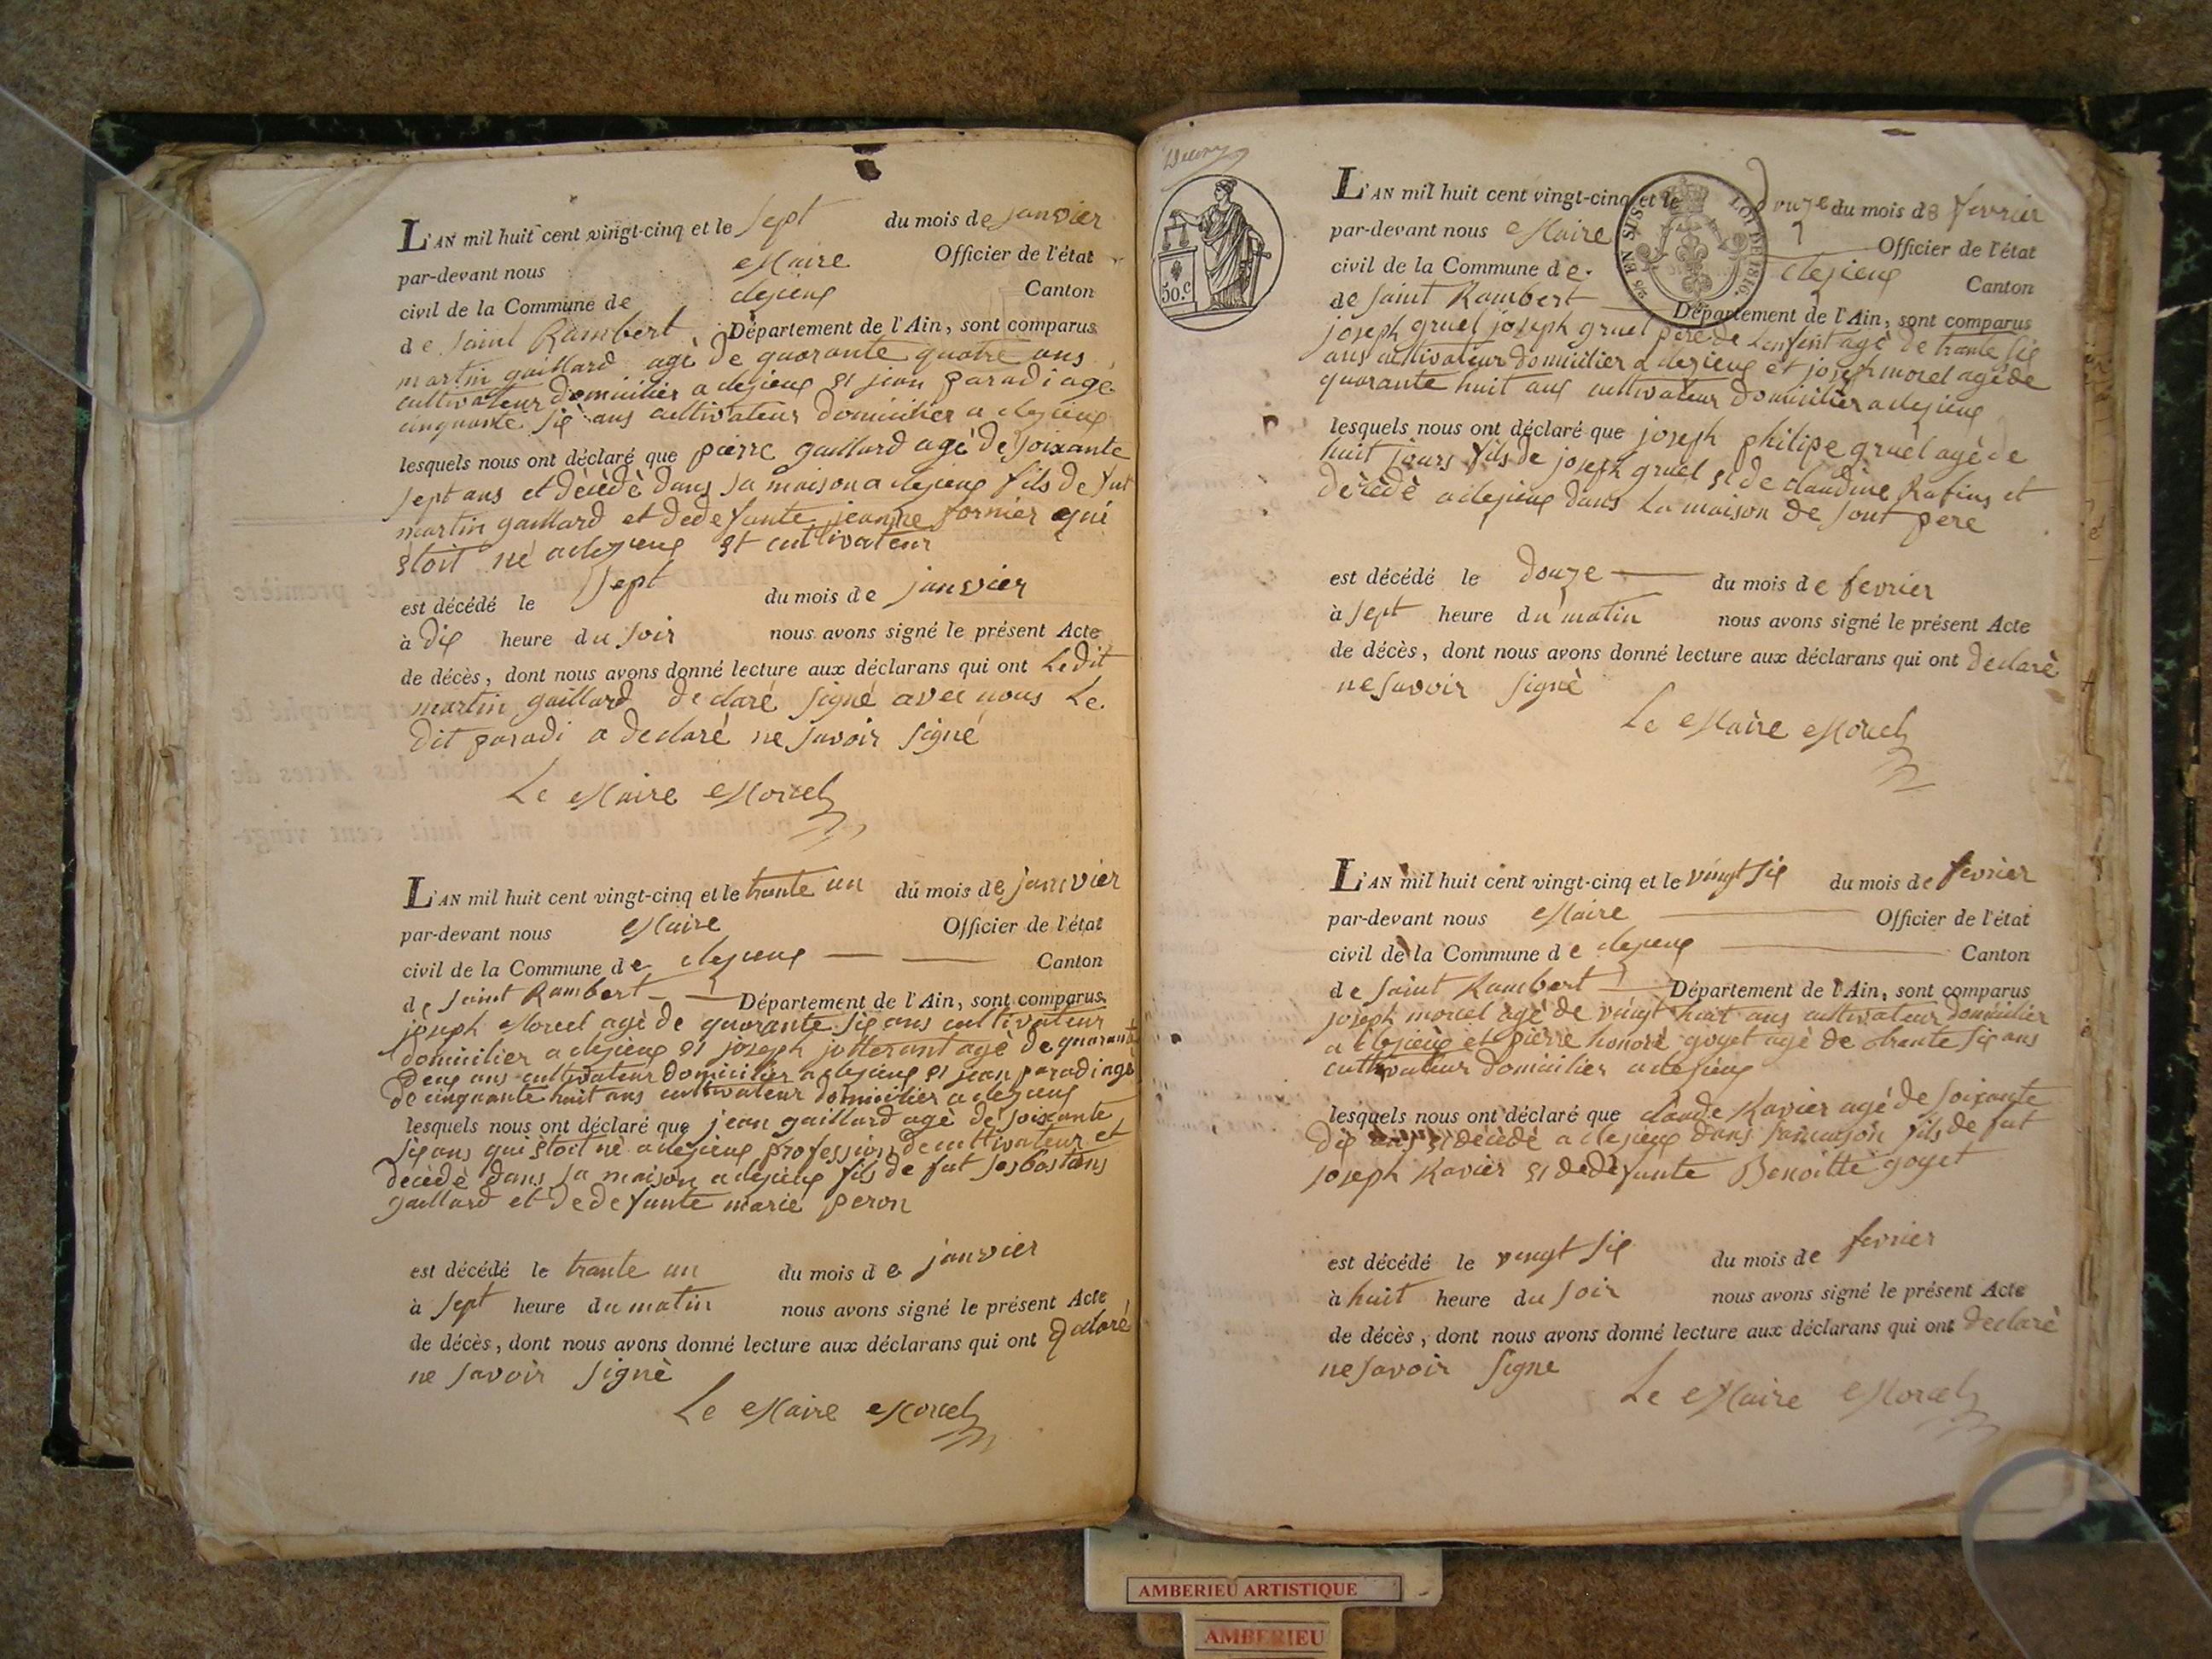 L'AN mil huit cent vingt-cinq et le sept du mois de janvier
par-devant nous Maire Officier de l'état
civil de la Commune de clezieux Canton
de saint Rambert Département de l'Ain, sont comparus
martin gaillard agé de quarante quatre ans
cultivateur domicilier a clezieux et jean paradi agé
cinquante six ans cultivateur domicilier a clezieux
lesquels nous ont déclaré que pierre gaillard agé de soixante
sept ans et décédé dans sa maison a clezieux fils de fut
martin gaillard et de defunte jeanne fornier qui
etoit né a clezieux et cultivateur
est décédé le sept du mois de janvier
à dix heure du soir nous avons signé le présent Acte
de décès, dont nous avons donné lecture aux déclarans qui ont Ledit
martin gaillard declaré signé avec nous Le
dit paradi a declaré ne savoir signé
Le Maire Morel
L'AN mil huit cent vingt-cinq et le trante un du mois de janvier
par-devant nous Maire Officier de l'état
civil de la Commune de clezieux Canton
de saint Rambert Département de l'Ain, sont comparus
joseph Morel agè de quarante six ans cultivateur
domicilier a clezieux et joseph jotterant agè de quarante
deux ans cultivateur domicilier a clezieux et jean paradi agé
de cinquante huit ans cultivateur domicilier a clezieux
lesquels nous ont déclaré que jean gaillard agè de soixante
six ans qui etoit nè a clezieux profession de cultivateur et
décèdè dans sa maison a clezieux fils de fut sesbastans
gaillard et de defunte marie peron
est décédé le trante un du mois de janvier
à sept heure du matin nous avons signé le présent Acte
de décès, dont nous avons donné lecture aux déclarans qui ont declaré
ne savoir signè
Le Maire Morel
50.c
25 EN SUS LOI DE 1816.
L'AN mil huit cent vingt-cinq et le douze du mois de fevrier
par-devant nous Maire Officier de l'état
civil de la Commune de clezieux Canton
de saint Rambert Département de l'Ain, sont comparus
joseph gruel joseph gruel père de Lenfent agè de trante six
ans cultivateur domicilier a clezieux et joseph morel agè de
quarante huit ans cultivateur domicilier a clezieux
lesquels nous ont déclaré que joseph philipe gruel agè de
huit jours fils de joseph gruel et de claudine Ratins et
décèdè a clezieux dans La maison de sont pere
est décédé le douze du mois de fevrier
à sept heure du matin nous avons signé le présent Acte
de décès, dont nous avons donné lecture aux déclarans qui ont declarè
ne savoir signè
Le Maire Morel
L'AN mil huit cent vingt-cinq et le vingt six du mois de fevrier
par-devant nous Maire Officier de l'état
civil de la Commune de clezieux Canton
de saint Rambert Département de l'Ain, sont comparus
joseph morel agè de vingt huit ans cultivateur domicilier
a clezieux et pierre honoré goyet agè de trante six ans
cultivateur domicilier a clezieux
lesquels nous ont déclaré que claude Ravier agé de soixante
dix ans et décèdè a clezieux dans sa maison fils de fut
joseph Ravier et de defunte Benoitte goyet
est décédé le vingt six du mois de fevrier
à huit heure du soir nous avons signé le présent Acte
de décès, dont nous avons donné lecture aux déclarans qui ont declarè
ne savoir signe
Le Maire Morel
AMBERIEU ARTISTIQUE
AMBERIEU